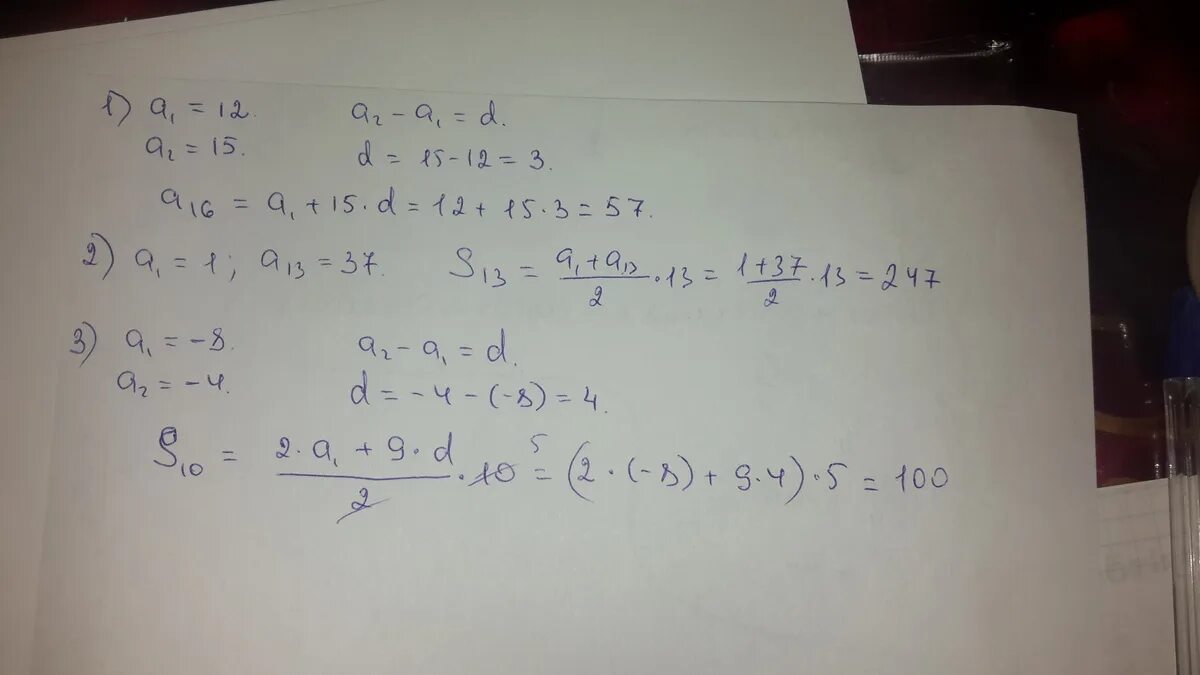 1) a₁ = 12. a₂ - a₁ = d.
a₂ = 15. d = 15-12 = 3.
a₁₆ = a₁ + 15·d = 12 + 15·3 = 57.
2) a₁ = 1; a₁₃ = 37. S₁₃ = (a₁ + a₁₃)/2 · 13 = (1+37)/2 · 13 = 247
3) a₁ = -8. a₂ - a₁ = d.
a₂ = -4. d = -4 - (-8) = 4.
S₁₀ = (2·a₁ + 9·d)/2 · 10 5 = (2·(-8) + 9·4)·5 = 100